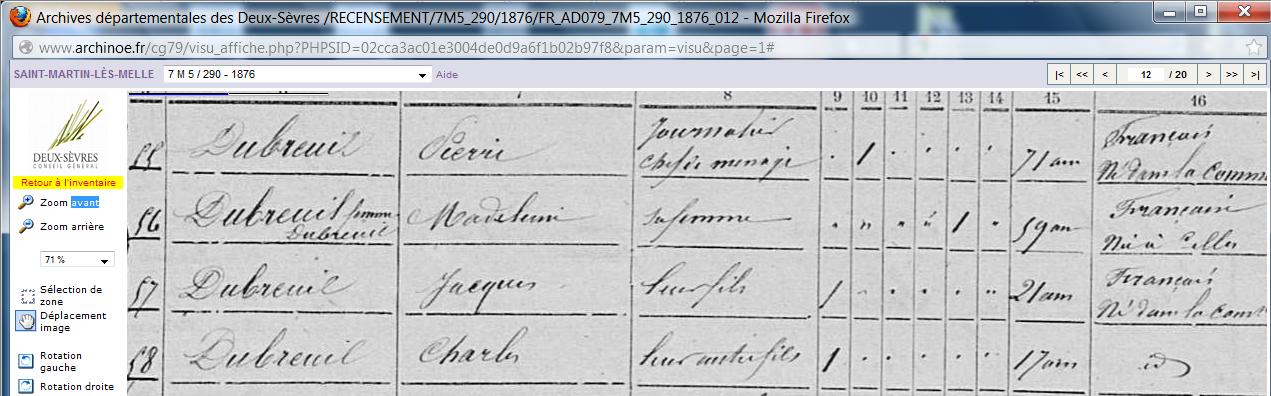 Archives départementales des Deux-Sèvres /RECENSEMENT/7M5_290/1876/FR_AD079_7M5_290_1876_012 - Mozilla Firefox
www.archinoe.fr/cg79/visu_affiche.php?PHPSID=02cca3ac01e3004de0d9a6f1b02b97f8&param=visu&page=1#
SAINT-MARTIN-LÈS-MELLE 7 M 5 / 290 - 1876 Aide |< << < 12 / 20 > >> >|
DEUX-SÈVRES
CONSEIL GÉNÉRAL
Retour à l'inventaire
Zoom avant
Zoom arrière
71 %
Sélection de
zone
Déplacement
image
Rotation
gauche
Rotation droite
7 8 9 10 11 12 13 14 15 16
55 Dubreuil Pierre Journalier
chef de ménage 1 71 ans Français
Né dans la Comm
56 Dubreuil femme
Dubreuil Madeleine sa femme " " " " 1 " 59 ans Français
Née à Celles
57 Dubreuil Jacques leur fils 1 " " " " " 21 ans Français
Né dans la Comm
58 Dubreuil Charles leur autre fils 1 " " " " " 17 ans id